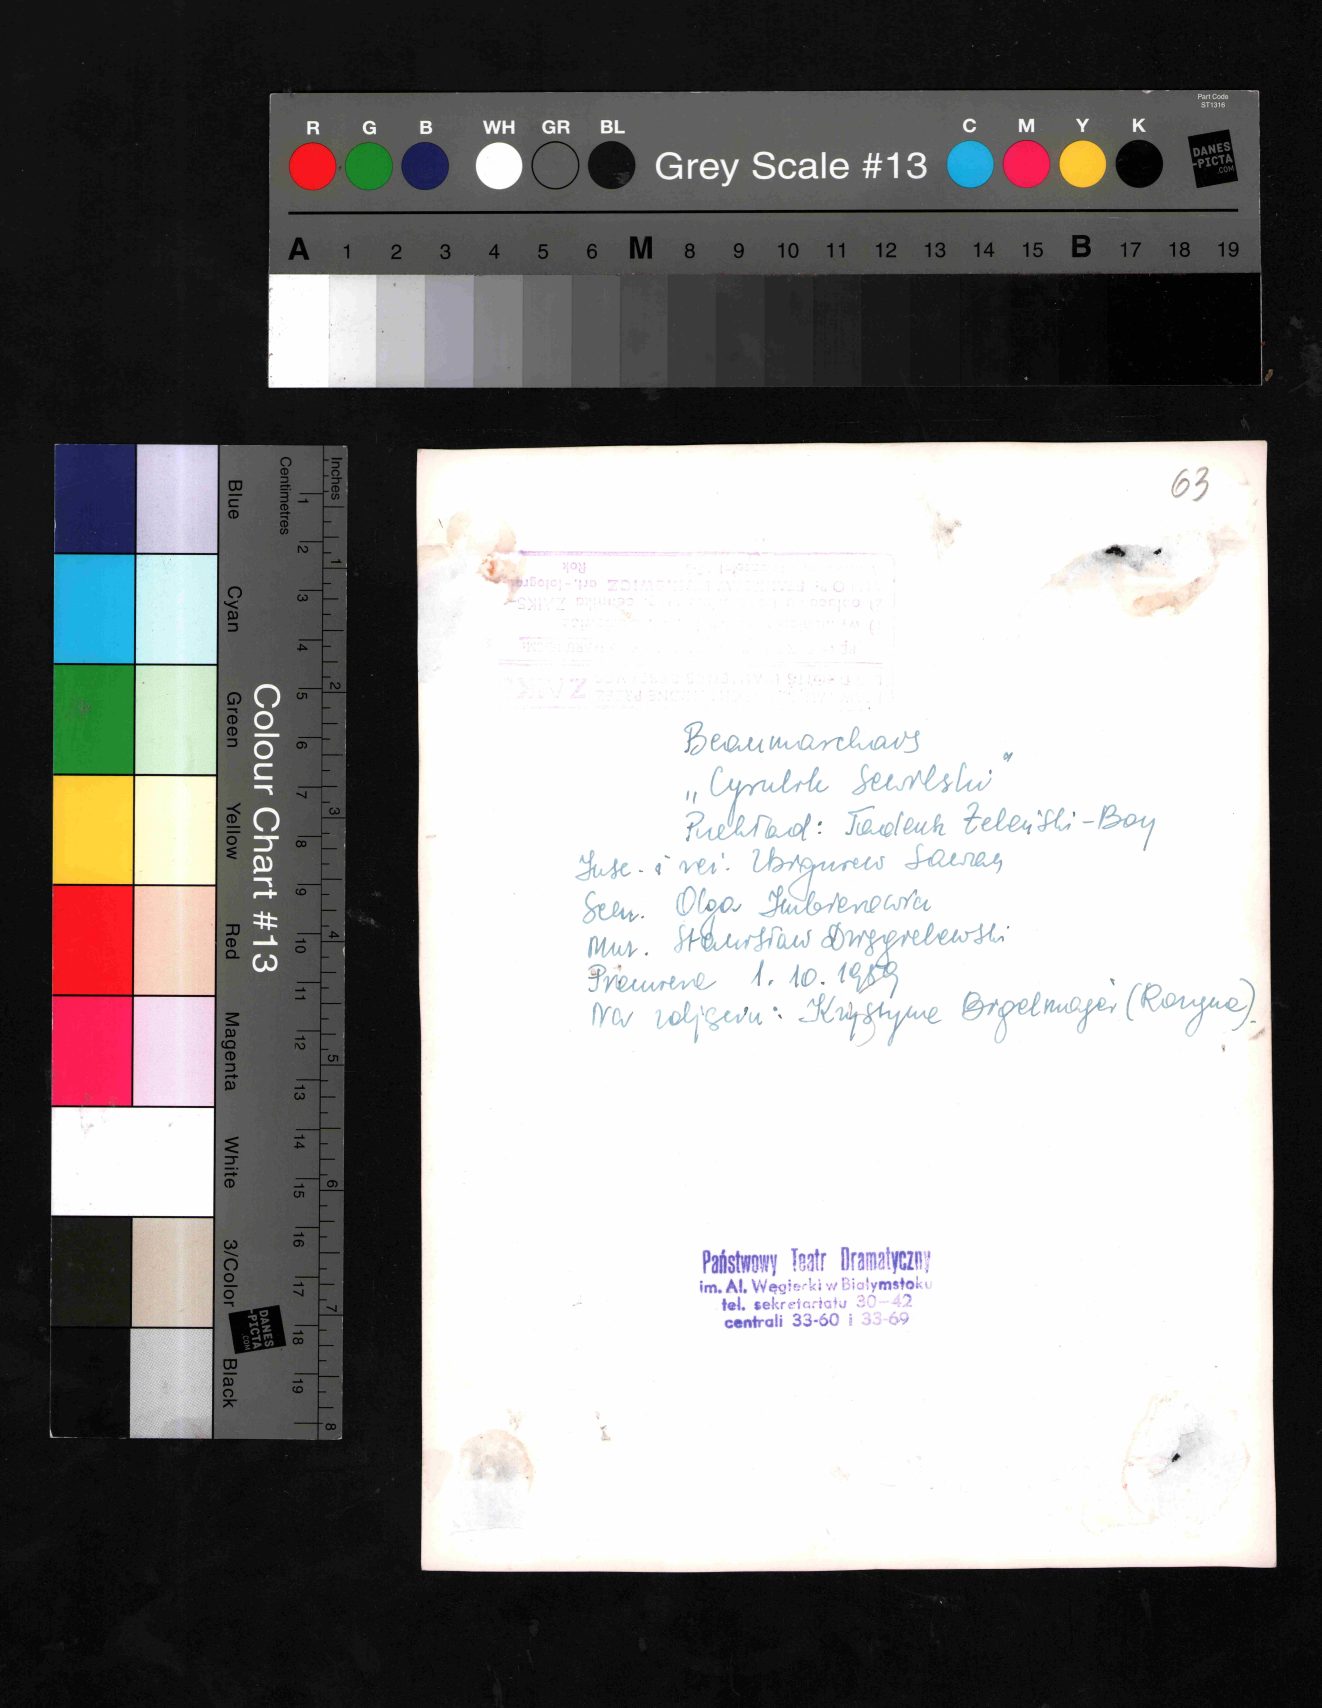 Part Code
ST1316
R G B WH GR BL Grey Scale #13 C M Y K
DANES
-PICTA
.COM
A 1 2 3 4 5 6 M 8 9 10 11 12 13 14 15 B 17 18 19
Colour Chart #13
Blue
Cyan
Green
Yellow
Red
Magenta
White
3/Color
Black
DANES
-PICTA
.COM
Centimetres
1 2 3 4 5 6 7 8 9 10 11 12 13 14 15 16 17 18 19
Inches
1 2 3 4 5 6 7 8
63
Rok
art.-fotograf
ZAIKS
Beaumarchais
„Cyrulik Sewilski"
Przekład: Tadeusz Żeleński-Boy
Insc. i reż. Zbigniew Sawan
Scen. Olga
Muz. Stanisław
Premiera 1. 10. 1959
Na zdjęciu: Krystyna (Rozyna).
Państwowy Teatr Dramatyczny
im. Al. Węgierki w Białymstoku
tel. sekretariatu 30-42
centrali 33-60 i 33-69